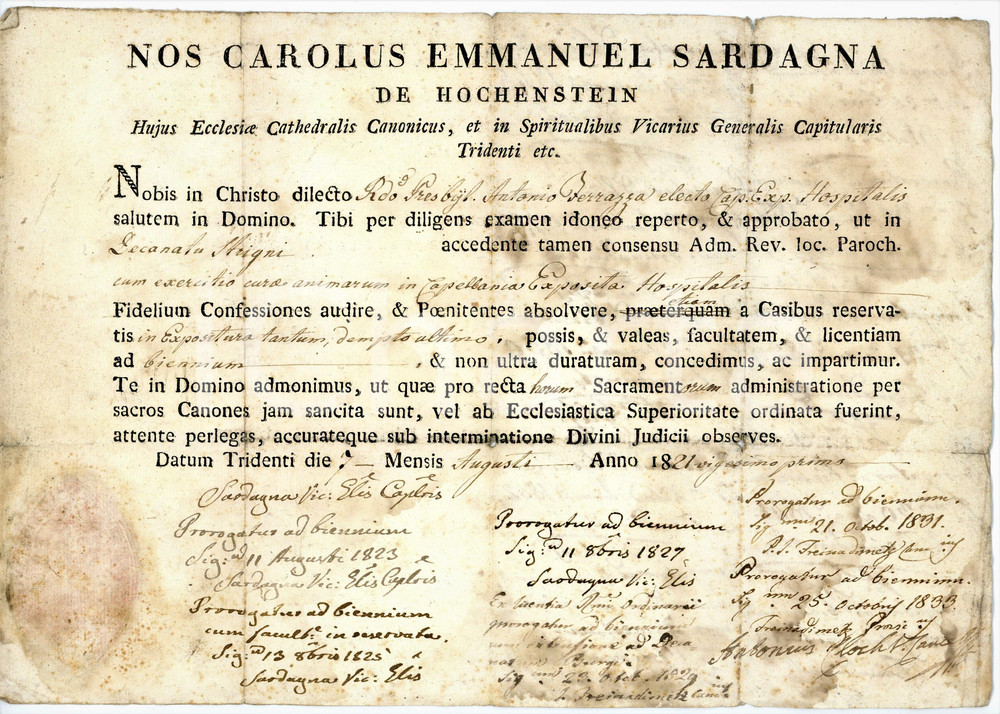 NOS CAROLUS EMMANUEL SARDAGNA
DE HOCHENSTEIN
Hujus Ecclesiæ Cathedralis Canonicus, et in Spiritualibus Vicarius Generalis Capitularis
Tridenti etc.
Nobis in Christo dilecto Rdo Presbyt. Antonio Ferrazza electo Cap. Exp. Hospitalis
salutem in Domino. Tibi per diligens examen idoneo reperto, & approbato, ut in
Decanatu Strigni accedente tamen consensu Adm. Rev. loc. Paroch.
cum exercitio curæ animarum in Capellania Exposita Hospitalis
etiam
Fidelium Confessiones audire, & Pœnitentes absolvere, præterquam a Casibus reserva-
tis in Expositura tantum, dempto ultimo, possis, & valeas, facultatem, & licentiam
ad biennium, & non ultra duraturam, concedimus, ac impartimur.
Te in Domino admonimus, ut quæ pro recta horum Sacramentorum administratione per
sacros Canones jam sancita sunt, vel ab Ecclesiastica Superioritate ordinata fuerint,
attente perlegas, accurateque sub interminatione Divini Judicii observes.
Datum Tridenti die 7 Mensis Augusti Anno 1821 vigesimo primo
Sardagna Vic: Glis Caplris
Prorogatur ad biennium
Sig: 11 Augusti 1823
Sardagna Vic: Glis Caplris
Prorogatur ad biennium
cum facult. in reservatis.
Sig: 13 8bris 1825
Sardagna Vic: Glis
Prorogatur ad biennium
Sig: 11 8bris 1827
Sardagna Vic: Glis
Ordinarii
prorogatur ad biennium
cum extensione ad Deca
natum
Sig 23. Octob. 1829
Freinadimetz
Prorogatur ad biennium.
Sig 21. Octob. 1831.
Freinadimetz
Prorogatur ad biennium.
Sig 25. Octobris 1833.
Freinadimetz
Antonius